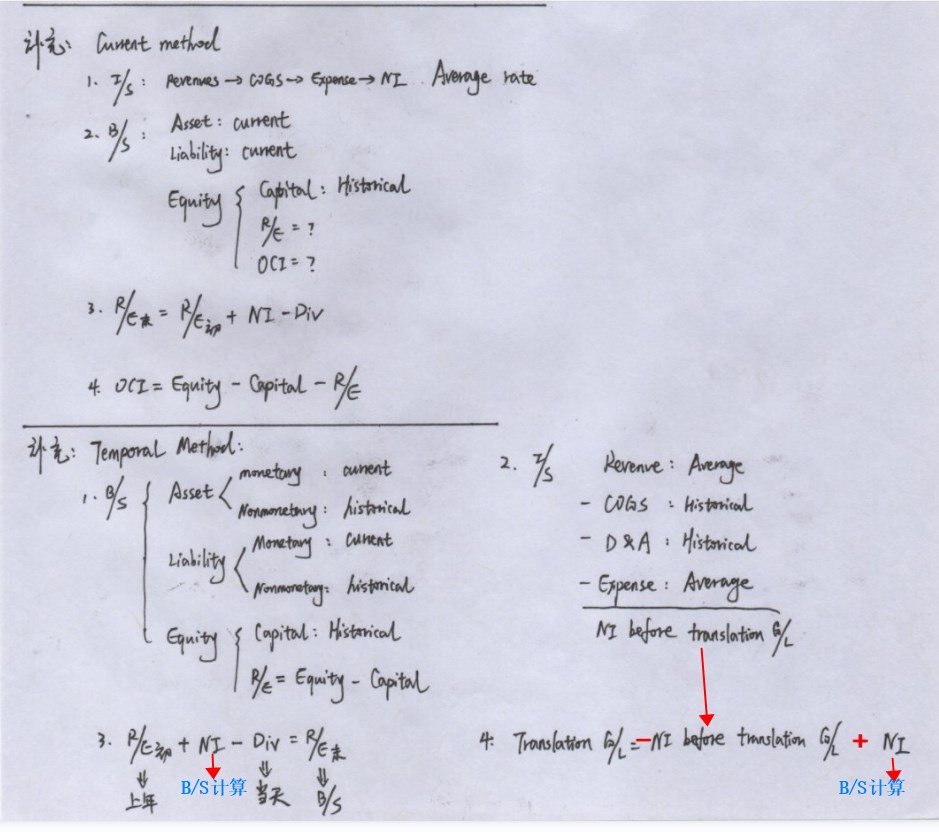 补充: Current method
1. I/S: Revenues → COGS → Expense → NI Average rate
2. B/S: Asset: current
Liability: current
Equity { Capital: Historical
R/E = ?
OCI = ?
3. R/E末 = R/E初 + NI - Div
4. OCI = Equity - Capital - R/E
补充: Temporal Method:
1. B/S { Asset < monetary: current
Nonmonetary: historical
Liability < Monetary: current
Nonmonetary: historical
Equity { Capital: Historical
R/E = Equity - Capital
2. I/S Revenue: Average
- COGS: Historical
- D&A: Historical
- Expense: Average
NI before translation G/L
3. R/E初 + NI - Div = R/E末
上年 B/S计算 当天 B/S
4. Translation G/L = -NI before translation G/L + NI
B/S计算